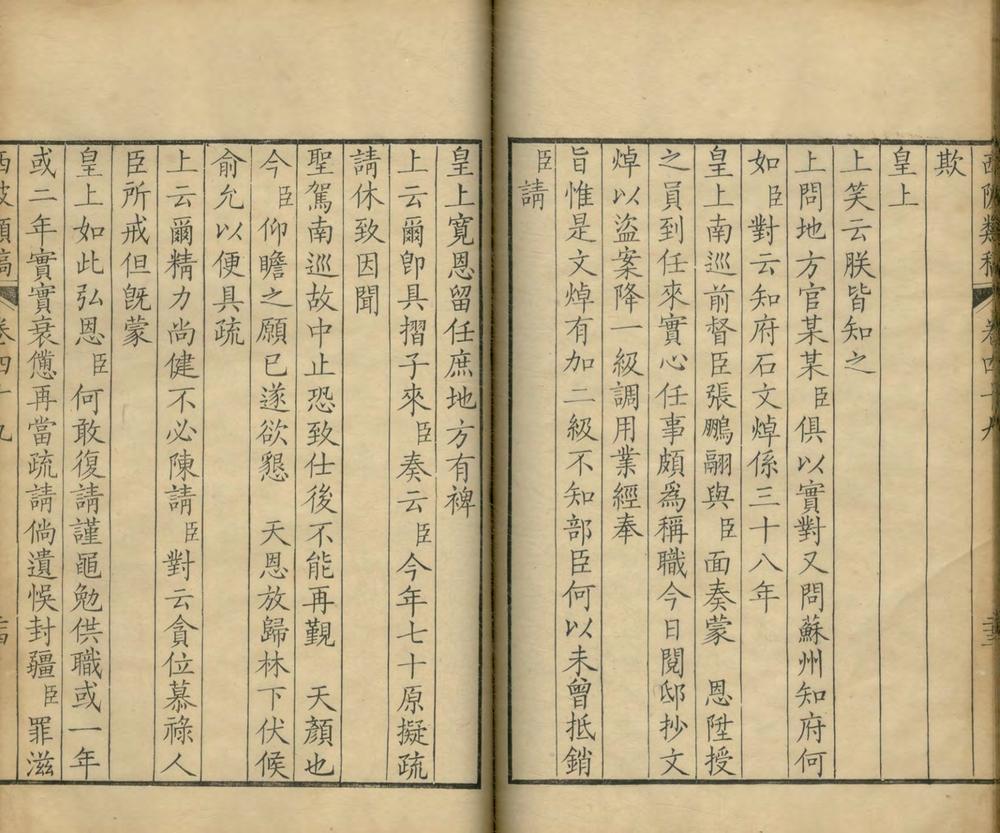 西陂類稿 卷四十九
欺
皇上
上笑云朕皆知之
上問地方官某某臣俱以實對又問蘇州知府何
如臣對云知府石文焯係三十八年
皇上南巡前督臣張鵬翮與臣面奏蒙 恩陞授
之員到任來實心任事頗爲稱職今日閱邸抄文
焯以盜案降一級調用業經奉
旨惟是文焯有加二級不知部臣何以未曾抵銷
臣請
皇上寬恩留任庶地方有裨
上云爾卽具摺子來臣奏云臣今年七十原擬疏
請休致因聞
聖駕南巡故中止恐致仕後不能再覲 天顏也
今臣仰瞻之願已遂欲懇 天恩放歸林下伏候
俞允以便具疏
上云爾精力尚健不必陳請臣對云貪位慕祿人
臣所戒但旣蒙
皇上如此弘恩臣何敢復請謹黽勉供職或一年
或二年實實衰憊再當疏請倘遺悞封疆臣罪滋
西陂類稿 卷四十九